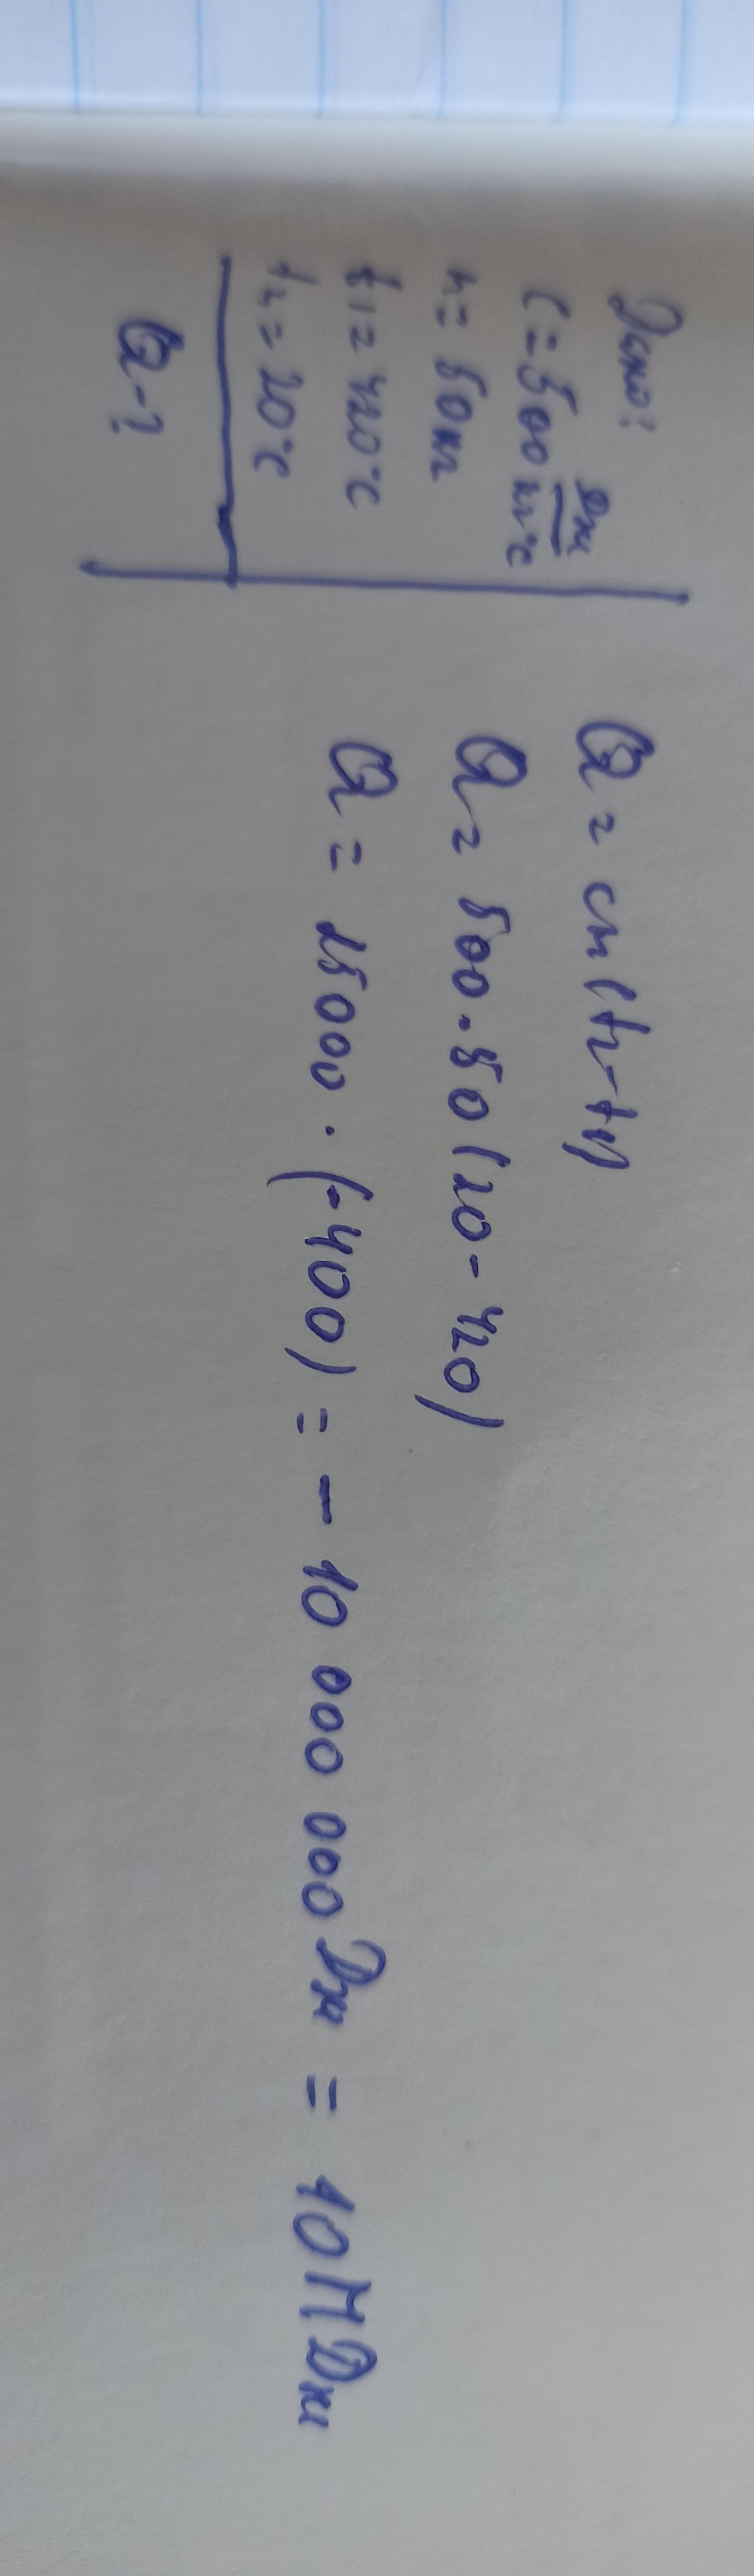 Дано:
C = 500 Дж/кг°C
m = 50 кг
t1 = 420°C
t2 = 20°C
Q - ?
Q = cm(t2-t1)
Q = 500·50(20-420)
Q = 25000·(-400) = -10 000 000 Дж = 10 МДж